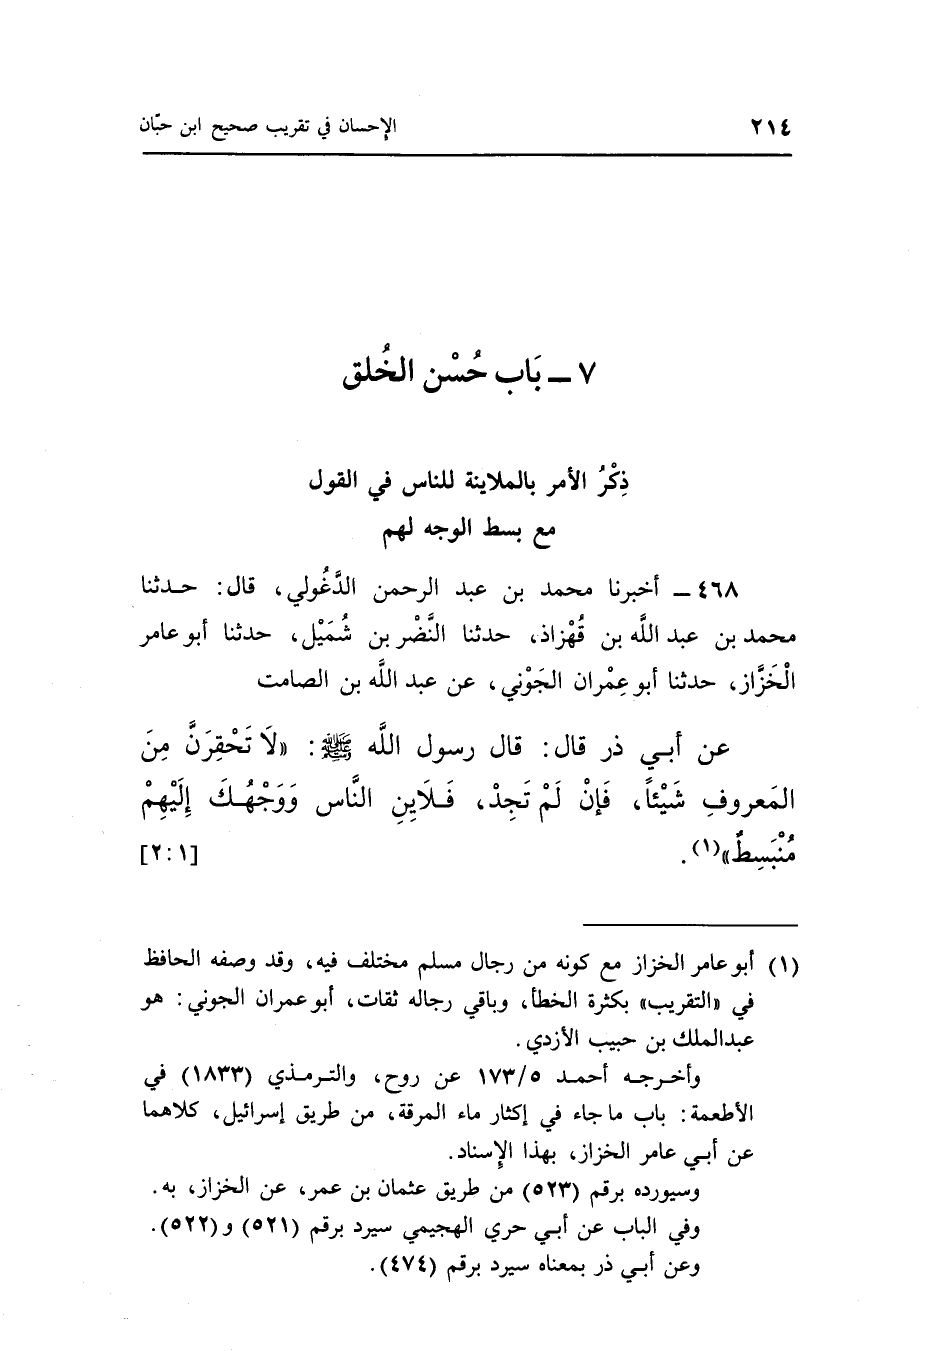 ٢١٤ الإحسان في تقريب صحيح ابن حبّان
٧ ــ بَاب حُسْن الخُلق
ذِكْرُ الأمر بالملاينة للناس في القول
مع بسط الوجه لهم
٤٦٨ ــ أخبرنا محمد بن عبد الرحمن الدَّغُولي، قال: حدثنا
محمد بن عبد اللَّه بن قُهْزاذ، حدثنا النَّضْر بن شُمَيْل، حدثنا أبو عامر
الْخَزَّاز، حدثنا أبو عِمْران الجَوْني، عن عبد اللَّه بن الصامت
عن أبي ذر قال: قال رسول اللَّه ﷺ: «لَا تَحْقِرَنَّ مِنَ
المَعروفِ شَيْئاً، فَإنْ لَمْ تَجِدْ، فَلَاينِ النَّاس وَوَجْهُكَ إلَيْهِمْ
مُنْبَسِطٌ»(١). [١ : ٢]
(١) أبو عامر الخزاز مع كونه من رجال مسلم مختلف فيه، وقد وصفه الحافظ
في «التقريب» بكثرة الخطأ، وباقي رجاله ثقات، أبو عمران الجوني: هو
عبدالملك بن حبيب الأزدي.
وأخرجه أحمد ١٧٣/٥ عن روح، والترمذي (١٨٣٣) في
الأطعمة: باب ما جاء في إكثار ماء المرقة، من طريق إسرائيل، كلاهما
عن أبي عامر الخزاز، بهذا الإسناد.
وسيورده برقم (٥٢٣) من طريق عثمان بن عمر، عن الخزاز، به.
وفي الباب عن أبي جري الهجيمي سيرد برقم (٥٢١) و (٥٢٢).
وعن أبي ذر بمعناه سيرد برقم (٤٧٤).